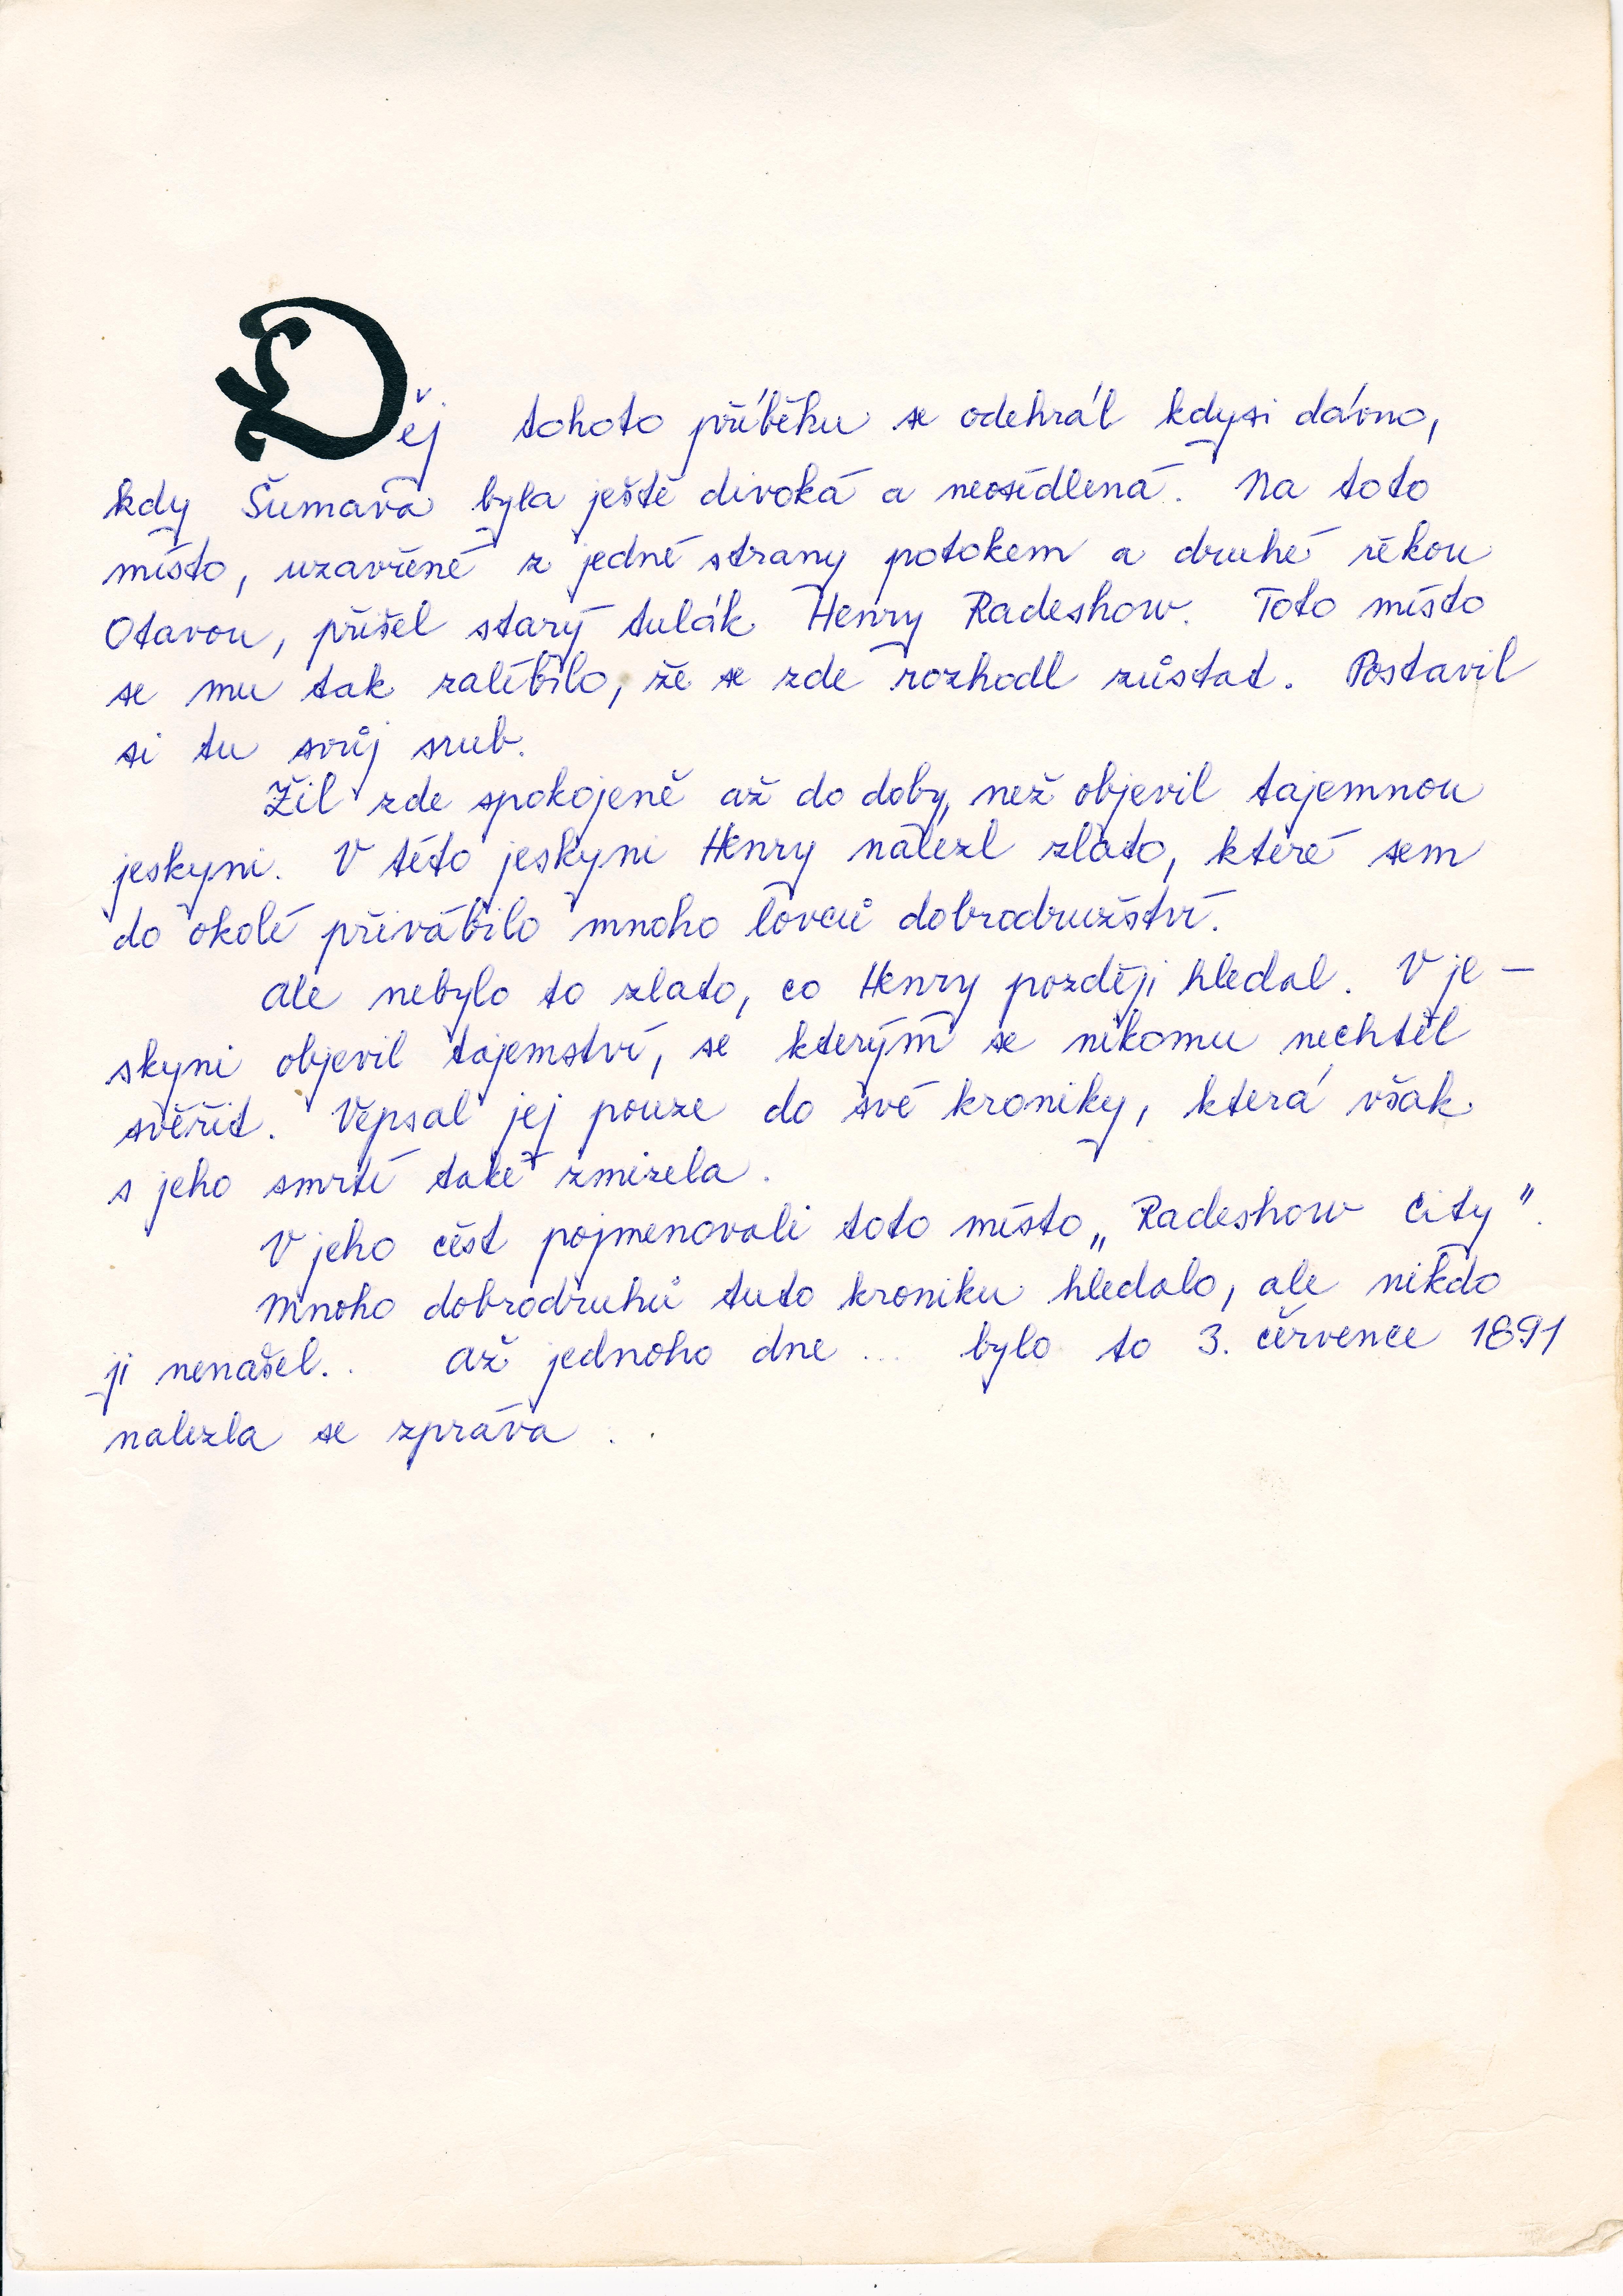 Děj tohoto příběhu se odehrál kdysi dávno,
kdy Šumava byla ještě divoká a neosídlená. Na toto
místo, uzavřené z jedné strany potokem a druhé řekou
Otavou, přišel starý tulák Henry Radeshow. Toto místo
se mu tak zalíbilo, že se zde rozhodl zůstat. Postavil
si tu svůj srub.
Žil zde spokojeně až do doby, než objevil tajemnou
jeskyni. V této jeskyni Henry nalezl zlato, které sem
do okolí přivábilo mnoho lovců dobrodružství.
Ale nebylo to zlato, co Henry později hledal. V je-
skyni objevil tajemství, se kterým se nikomu nechtěl
svěřit. Vepsal jej pouze do své kroniky, která však
s jeho smrtí také zmizela.
V jeho čest pojmenovali toto místo „Radeshow City".
Mnoho dobrodruhů tuto kroniku hledalo, ale nikdo
ji nenašel.. Až jednoho dne ... bylo to 3. července 1891
nalezla se zpráva ..